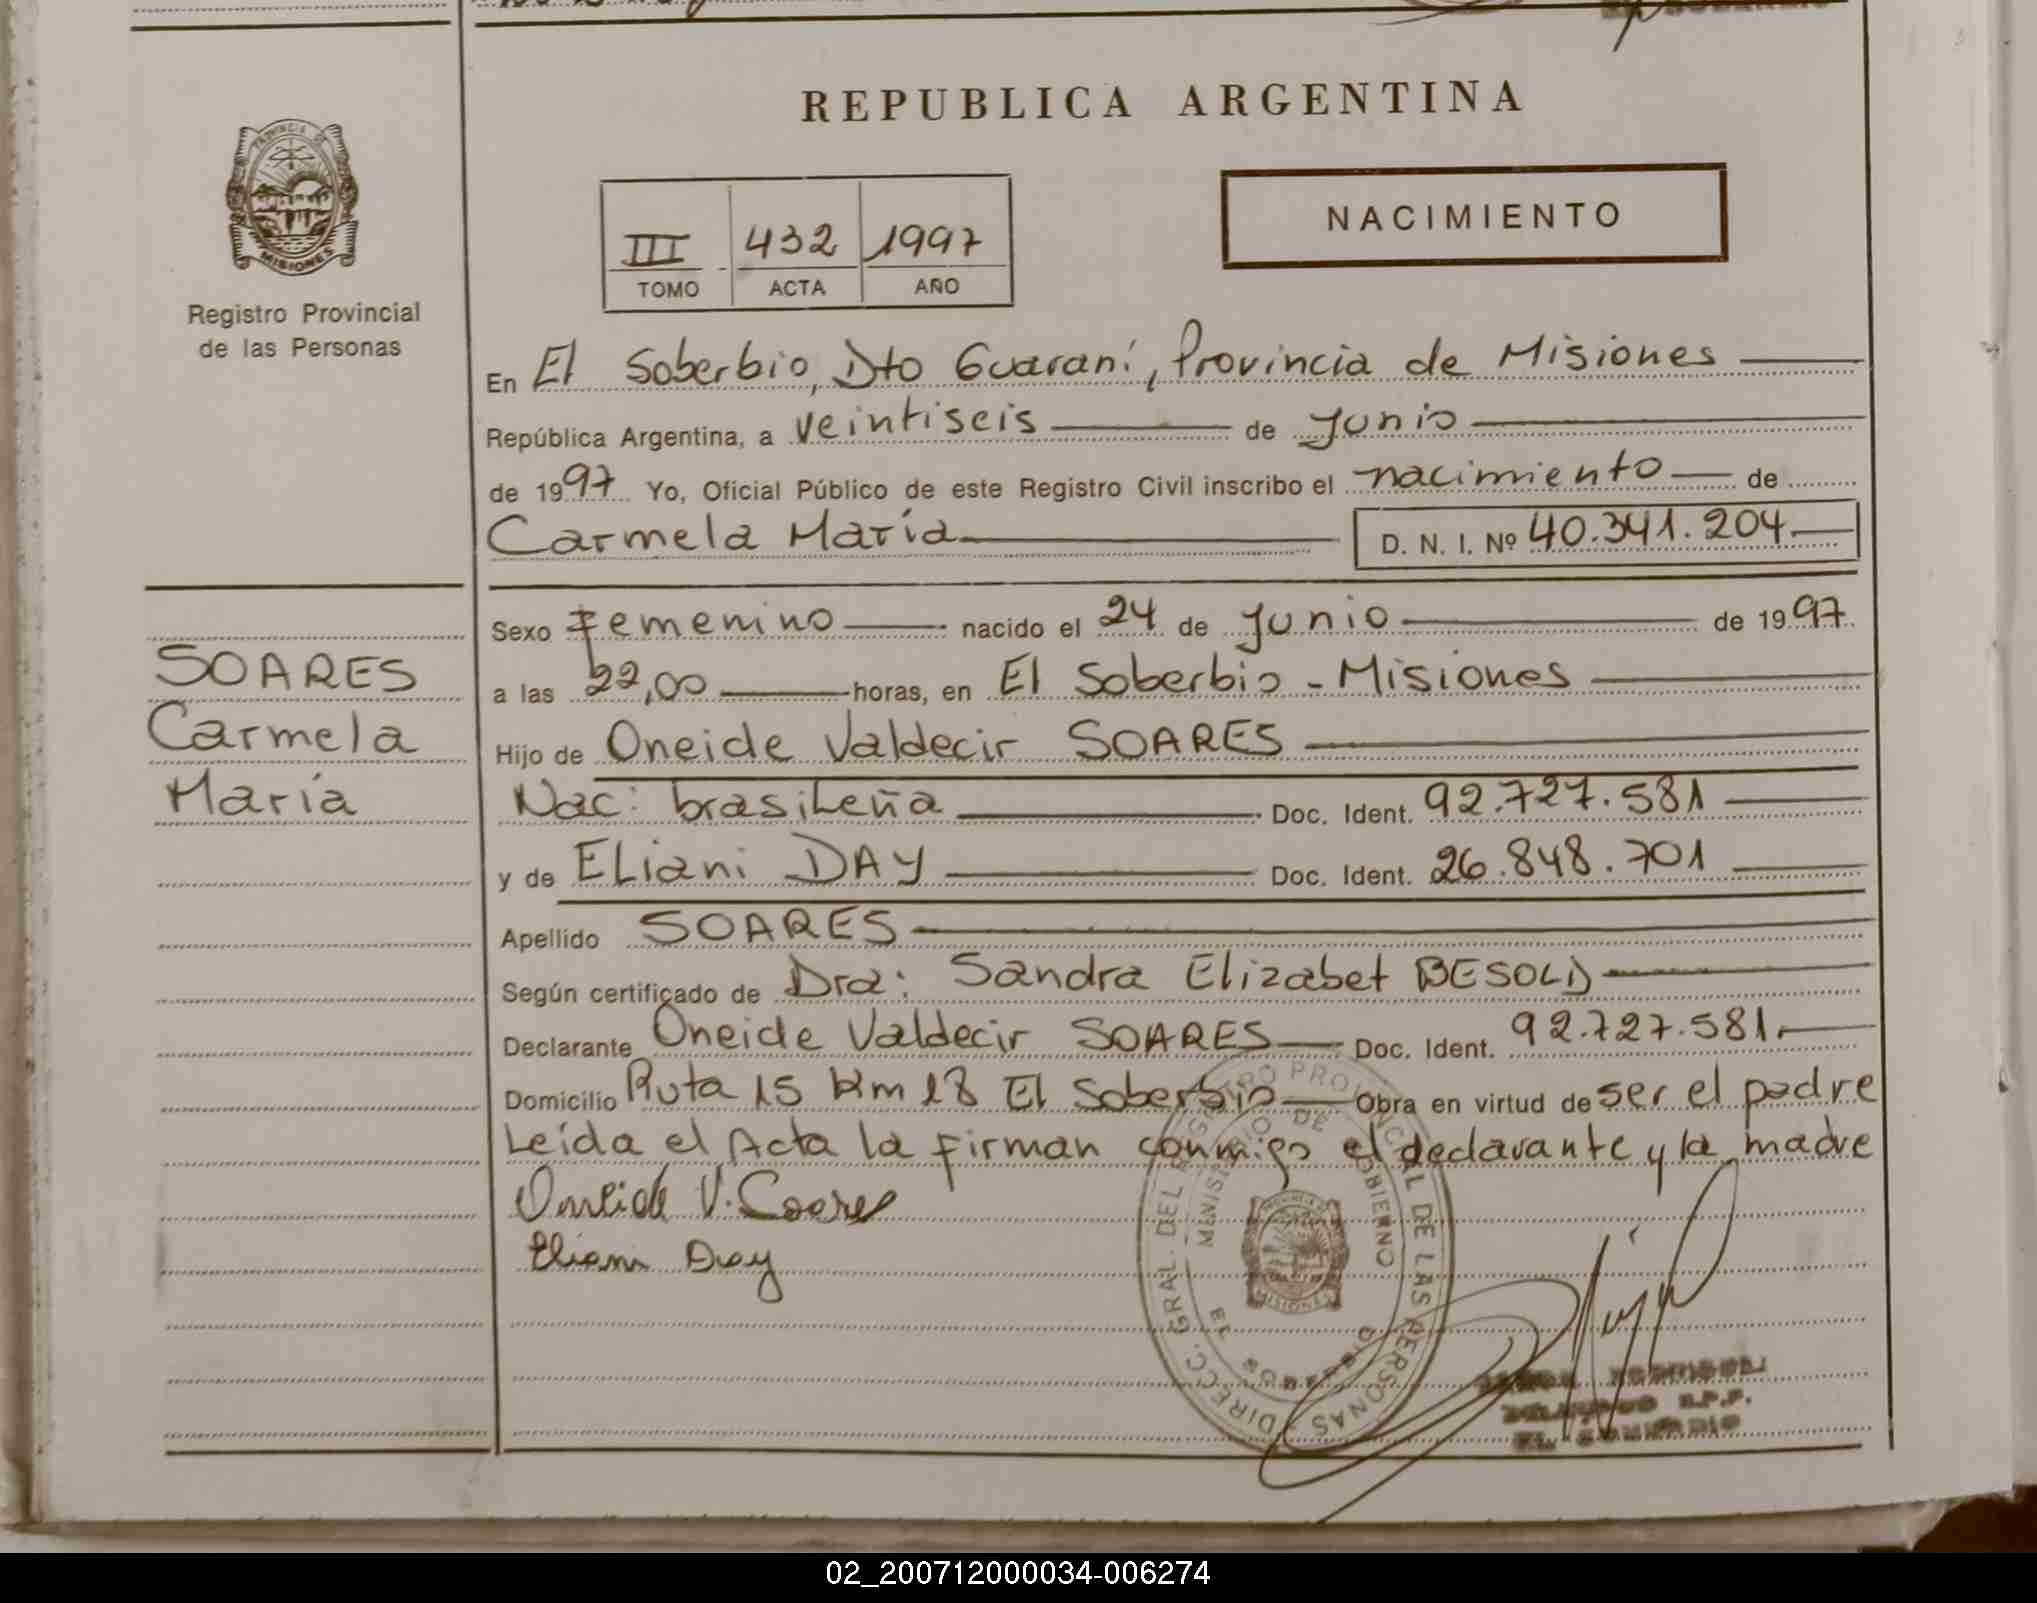 REPUBLICA ARGENTINA
PROVINCIA DE
MISIONES
Registro Provincial
de las Personas
III 432 1997
TOMO ACTA AÑO
NACIMIENTO
En El Soberbio, Dto Guaraní, Provincia de Misiones
República Argentina, a veintiseis de junio
de 1997 Yo, Oficial Público de este Registro Civil inscribo el nacimiento de
Carmela María D. N. I. Nº 40.341.204
SOARES
Carmela
María
Sexo Femenino nacido el 24 de junio de 1997
a las 22,00 horas, en El Soberbio - Misiones
Hijo de Oneide Valdecir SOARES
Nac: brasileña Doc. Ident. 92.727.581
y de Eliani DAY Doc. Ident. 26.848.701
Apellido SOARES
Según certificado de Dra: Sandra Elizabet BESOLD
Declarante Oneide Valdecir SOARES Doc. Ident. 92.727.581
Domicilio Ruta 15 Km 18 El Soberbio Obra en virtud de ser el padre
Leída el Acta la firman conmigo el declarante y la madre
Oneide V. Soares
Eliani Day
DIRECC. GRAL. DEL REGISTRO PROVINCIAL DE LAS PERSONAS
MINISTERIO DE GOBIERNO
MISIONES
EL SOBERBIO
02_200712000034-006274